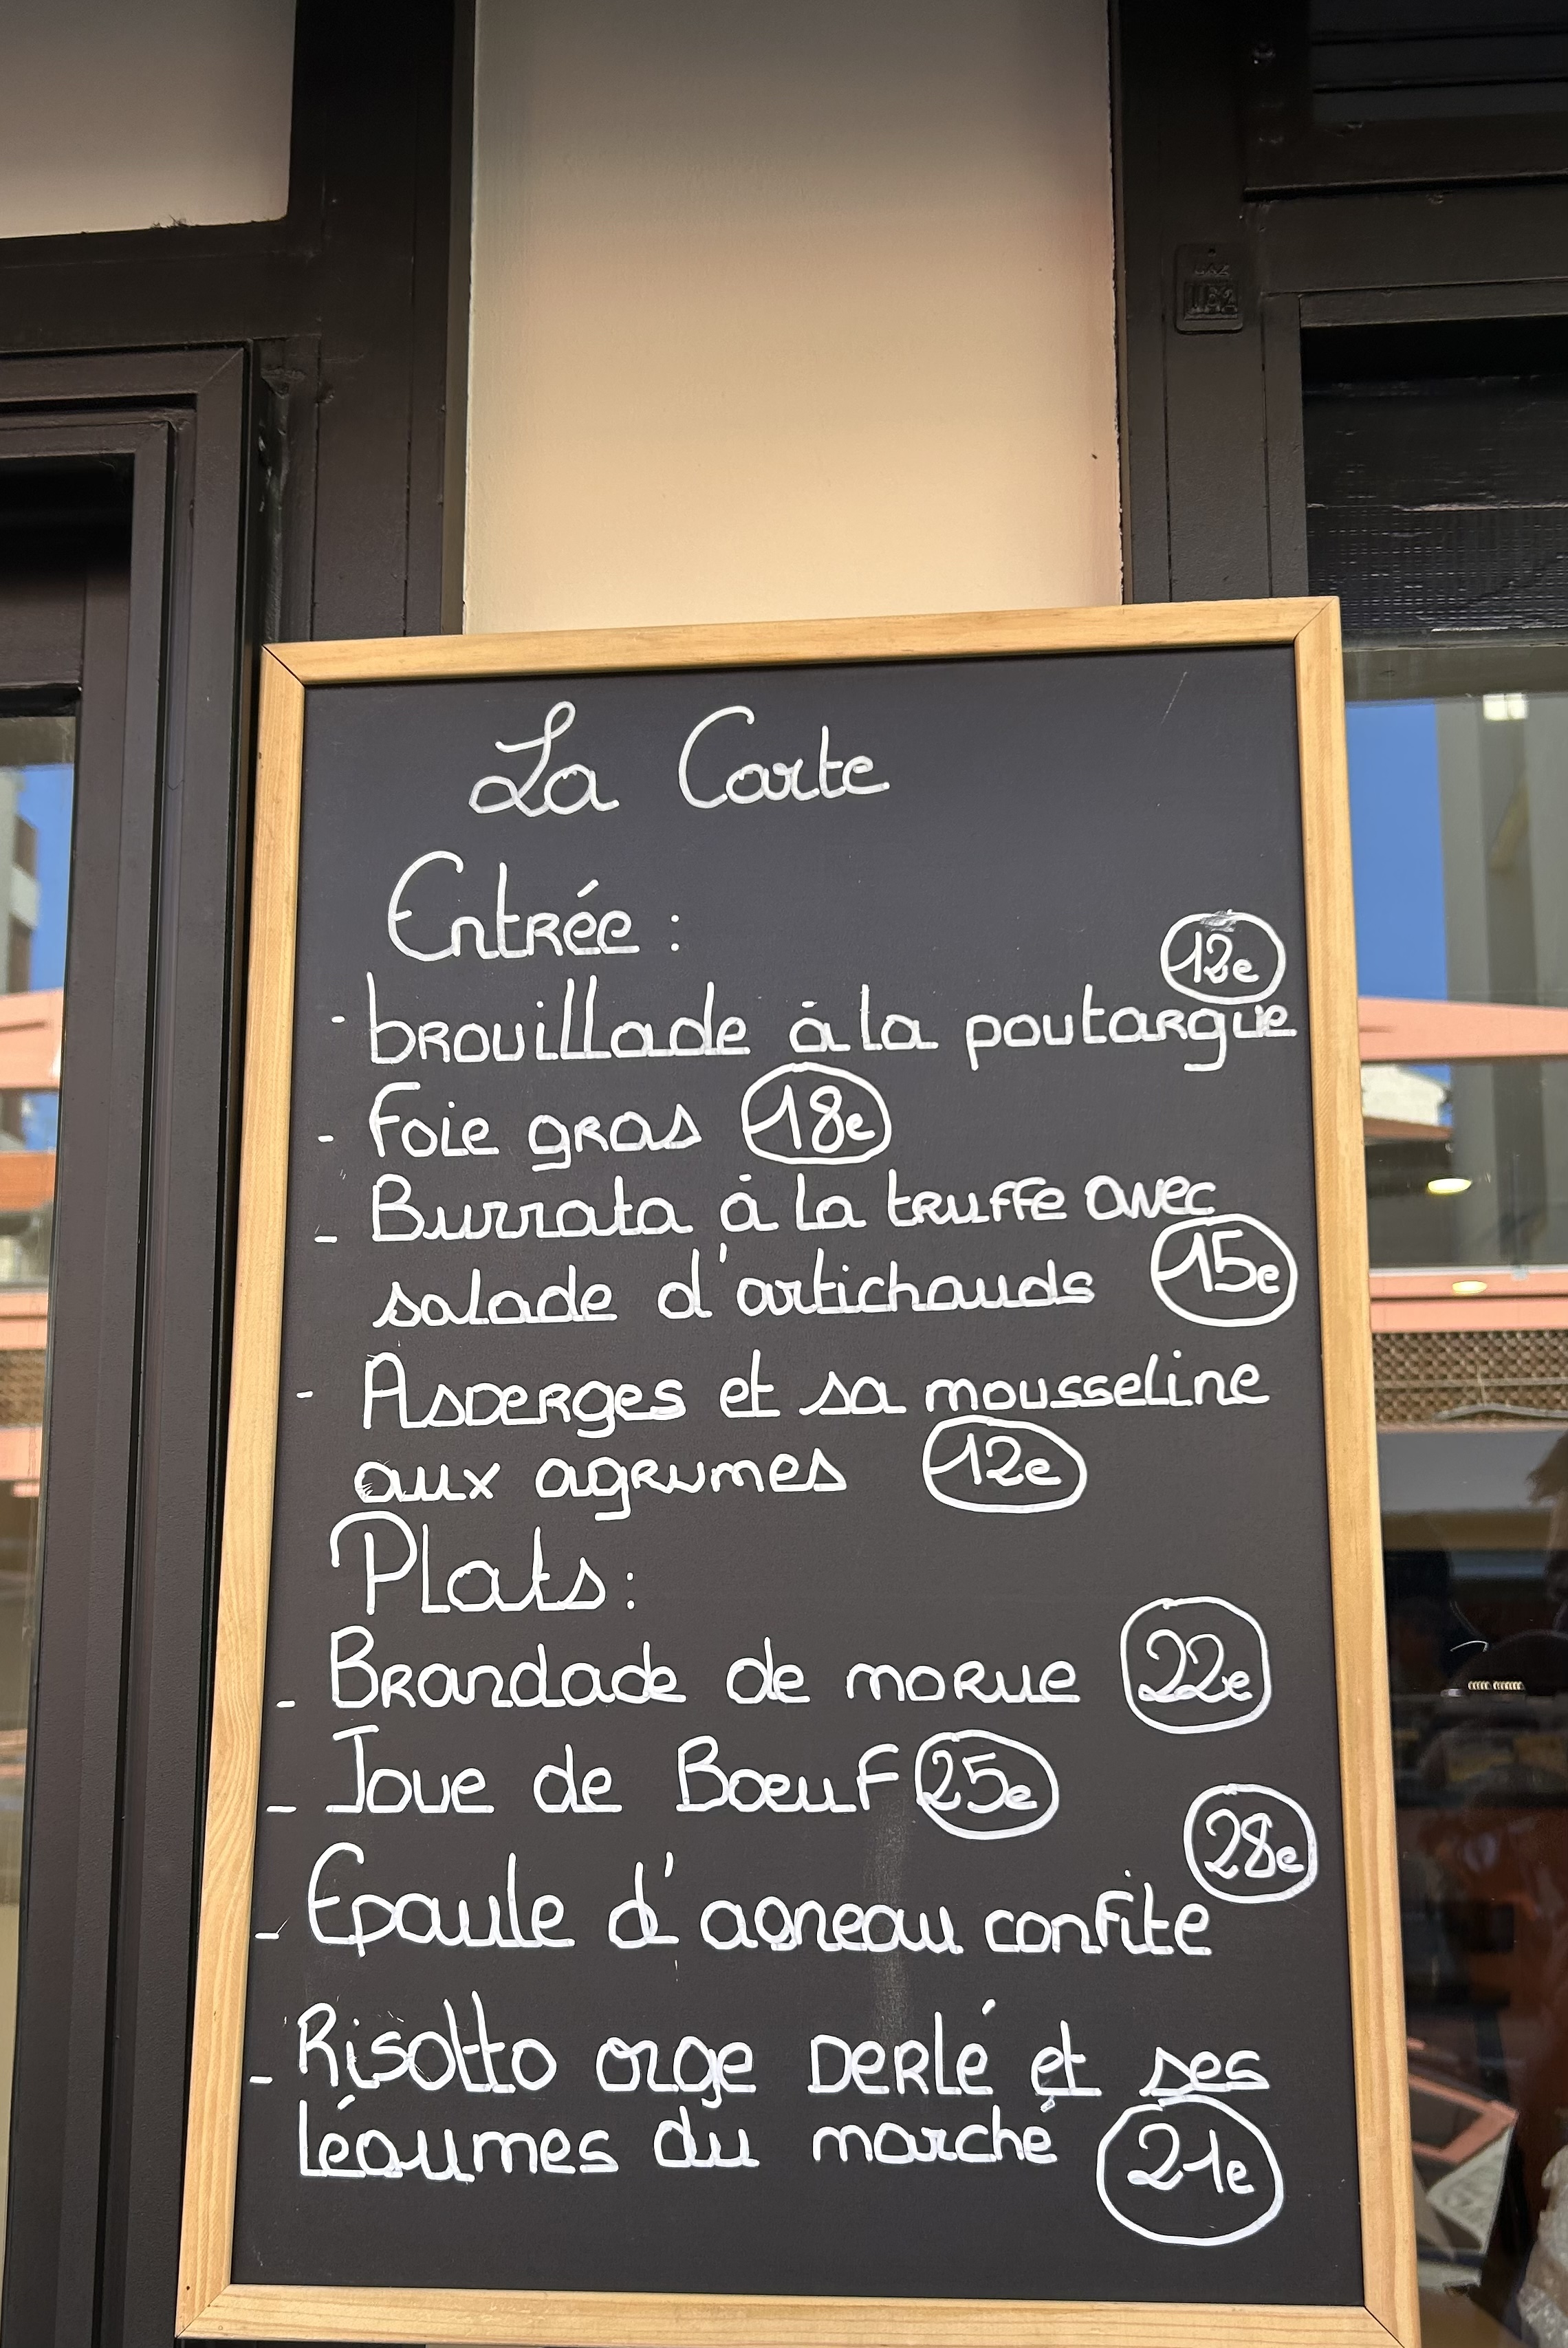 La Carte
Entrée :
12e
- brouillade à la poutargue
- Foie gras 18e
- Burrata à la truffe avec
salade d'artichauds 15e
- Asperges et sa mousseline
aux agrumes 12e
Plats :
- Brandade de morue 22e
- Joue de Bœuf 25e
28e
- Epaule d'agneau confite
- Risotto orge perlé et ses
légumes du marché 21e